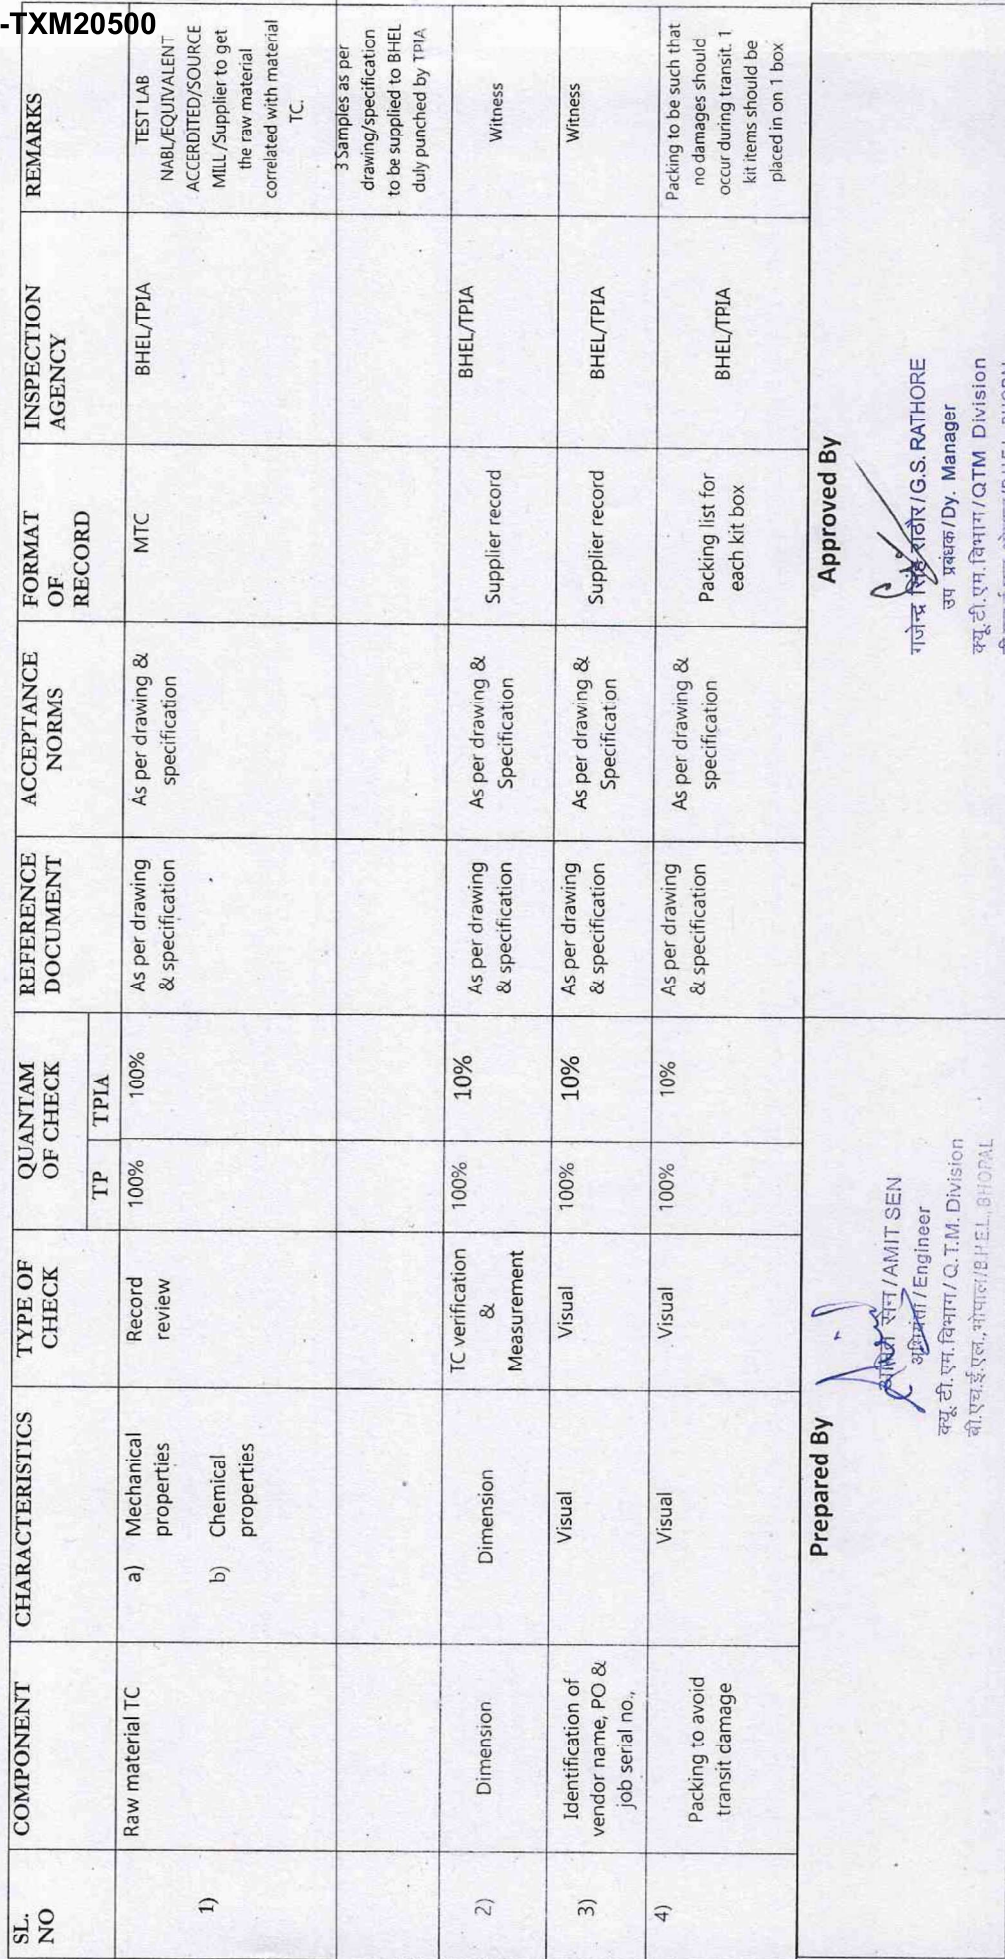 -TXM20500
SL.
NO
COMPONENT
CHARACTERISTICS
TYPE OF
CHECK
QUANTAM
OF CHECK
TP
TPIA
REFERENCE
DOCUMENT
ACCEPTANCE
NORMS
FORMAT
OF
RECORD
INSPECTION
AGENCY
REMARKS
1)
Raw material TC
a) Mechanical
properties
b) Chemical
properties
Record
review
100%
100%
As per drawing
& specification
As per drawing &
specification
MTC
BHEL/TPIA
TEST LAB
NABL/EQUIVALENT
ACCERDITED/SOURCE
MILL /Supplier to get
the raw material
correlated with material
TC.
3 Samples as per
drawing/specification
to be supplied to BHEL
duly punched by TPIA
2)
Dimension
Dimension
TC verification
&
Measurement
100%
10%
As per drawing
& specification
As per drawing &
Specification
Supplier record
BHEL/TPIA
Witness
3)
Identification of
vendor name, PO &
job serial no.,
Visual
Visual
100%
10%
As per drawing
& specification
As per drawing &
Specification
Supplier record
BHEL/TPIA
Witness
4)
Packing to avoid
transit damage
Visual
Visual
100%
10%
As per drawing
& specification
As per drawing &
specification
Packing list for
each kit box
BHEL/TPIA
Packing to be such that
no damages should
occur during transit. 1
kit items should be
placed in on 1 box
Prepared By
सेन / AMIT SEN
अभियंता / Engineer
क्यू. टी. एम. विभाग / Q.T.M. Division
बी.एच.ई.एल., भोपाल/B.H.E.L., BHOPAL
Approved By
गजेन्द्र सिंह राठौर / G.S. RATHORE
उप प्रबंधक / Dy. Manager
क्यू. टी. एम. विभाग / QTM Division